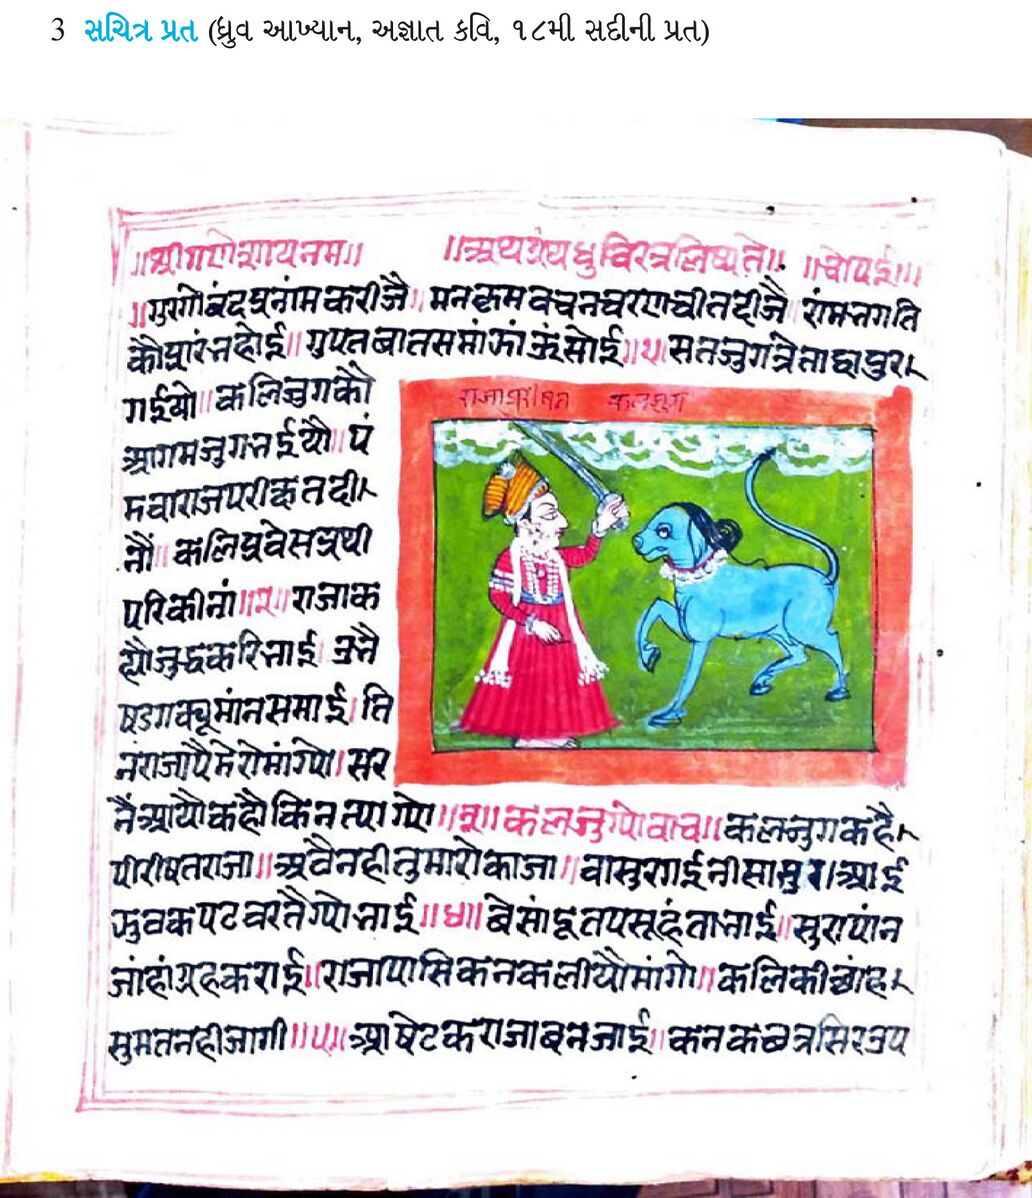 3 સચિત્ર પ્રત (ધ્રુવ આખ્યાન, અજ્ઞાત કવિ, ૧૮મી સદીની પ્રત)
॥श्रीगणेशायनम॥ ॥अथग्रंथध्रुचिरत्रलिष्यते॥ ॥चोपई॥
॥गुरगोबंदप्रनांमकरीजै॥मनक्रमवचनचरणचीतदीजै रांमभगति
कौप्रारंनहोई॥गुपतबातसमांऊंसोई॥१॥सतजुगत्रेताद्वापुर
गईयो॥कलिजुगकौ
आगमजुगनईयौ॥पं
डवाराजपरीक्षतदी
नौं॥कलिप्रवेसप्रथी
परिकीनां॥२॥राजाक
ह्यौजुद्धकरिभाई
राजापरीषत कलजुग
षडगक्यूमांनसमाई।ति
नंराजापैमेरोमांग्यो।सर
नैंआयौकहौकिनत्याग्यो॥३॥कलजुग्योवाच॥कलजुगकहै
पीरीषतराजा॥अवैनहीतुमारोकाजा॥वासुरगाईनीसासुर।आई
कपटवरतैग्योभाई॥४॥वेसांदूतपसूहंताभाई॥सुरापांन
जांहांग्रहकराई॥राजापासिकनकलीयौमांगी॥कलिकीछांह
सुमतनहीजागी॥५॥आषेटकराजाबनजाई॥कनकछत्रसिर